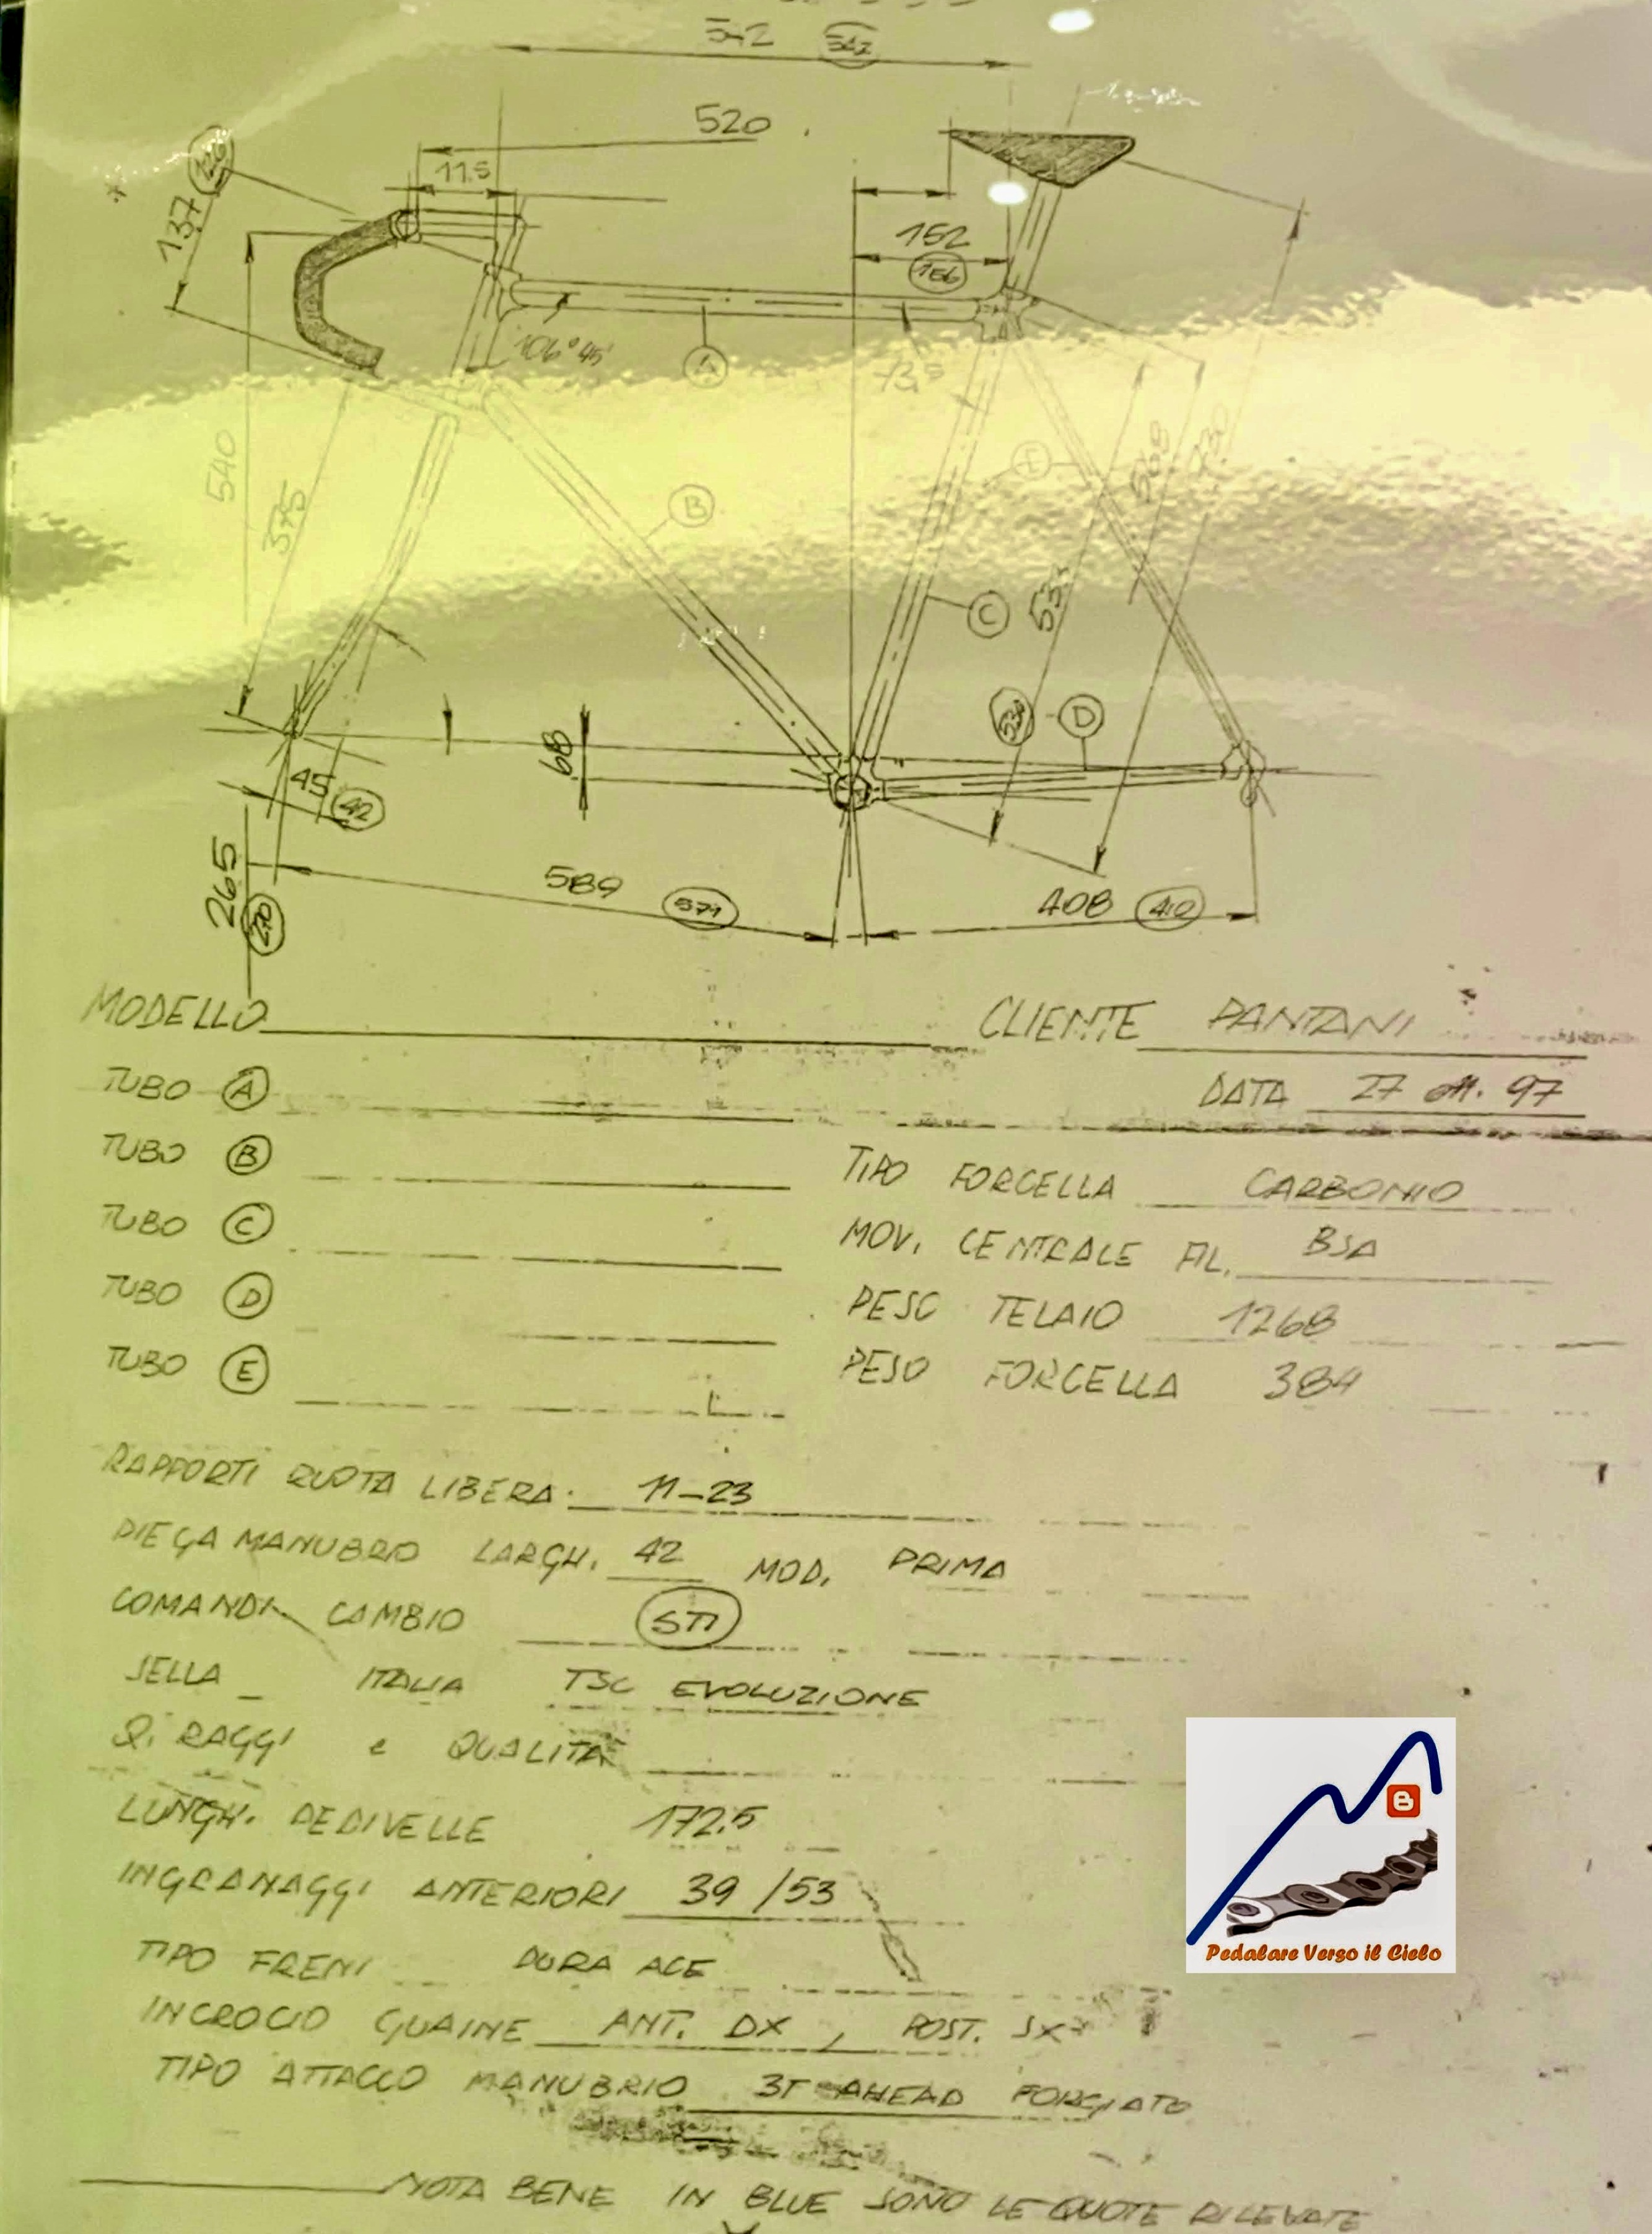 542 542
520
11.5
137 126
152
156
106°45'
A
73,5
540
375
B
E
569
730
C
535
530
D
68
45 42
265
270
589 571
408 410
MODELLO CLIENTE PANTANI
TUBO A DATA 27 ott. 97
TUBO B TIPO FORCELLA CARBONIO
TUBO C MOV. CENTRALE FIL. BSA
TUBO D PESO TELAIO 1268
TUBO E PESO FORCELLA 384
RAPPORTI RUOTA LIBERA: 11-23
PIEGA MANUBRO LARGH. 42 MOD. PRIMA
COMANDI CAMBIO STI
SELLA _ ITALIA TSC EVOLUZIONE
Q. RAGGI e QUALITA'
LUNGH. PEDIVELLE 172.5
INGRANAGGI ANTERIORI 39 /53
TIPO FRENI DURA ACE
INCROCIO GUAINE ANT. DX , POST. SX
TIPO ATTACCO MANUBRIO 3T AHEAD FORGIATO
NOTA BENE IN BLUE SONO LE QUOTE RILEVATE
B
Pedalare Verso il Cielo